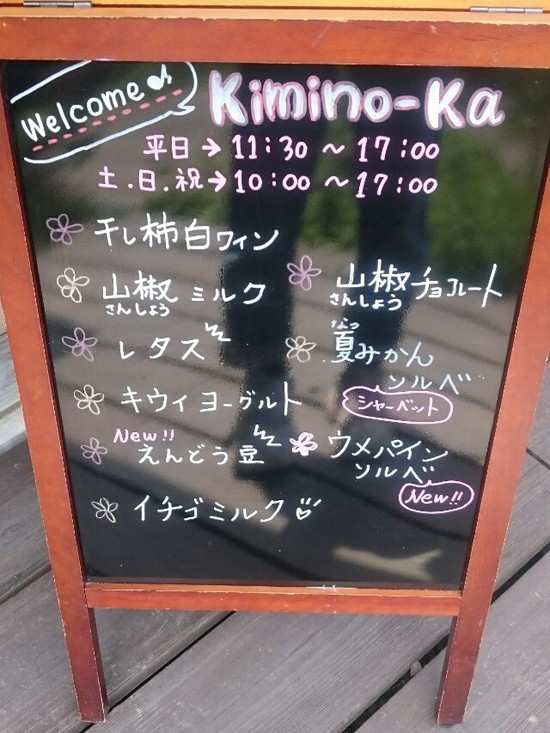 Welcome♪
Kimino-Ka
平日→11:30～17:00
土.日.祝→10:00～17:00
干し柿白ワイン
山椒ミルク
さんしょう
山椒チョコレート
さんしょう
レタス
なつ
夏みかん
ソルベ
シャーベット
キウイヨーグルト
New!!
えんどう豆
ウメパイン
ソルベ
New!!
イチゴミルク